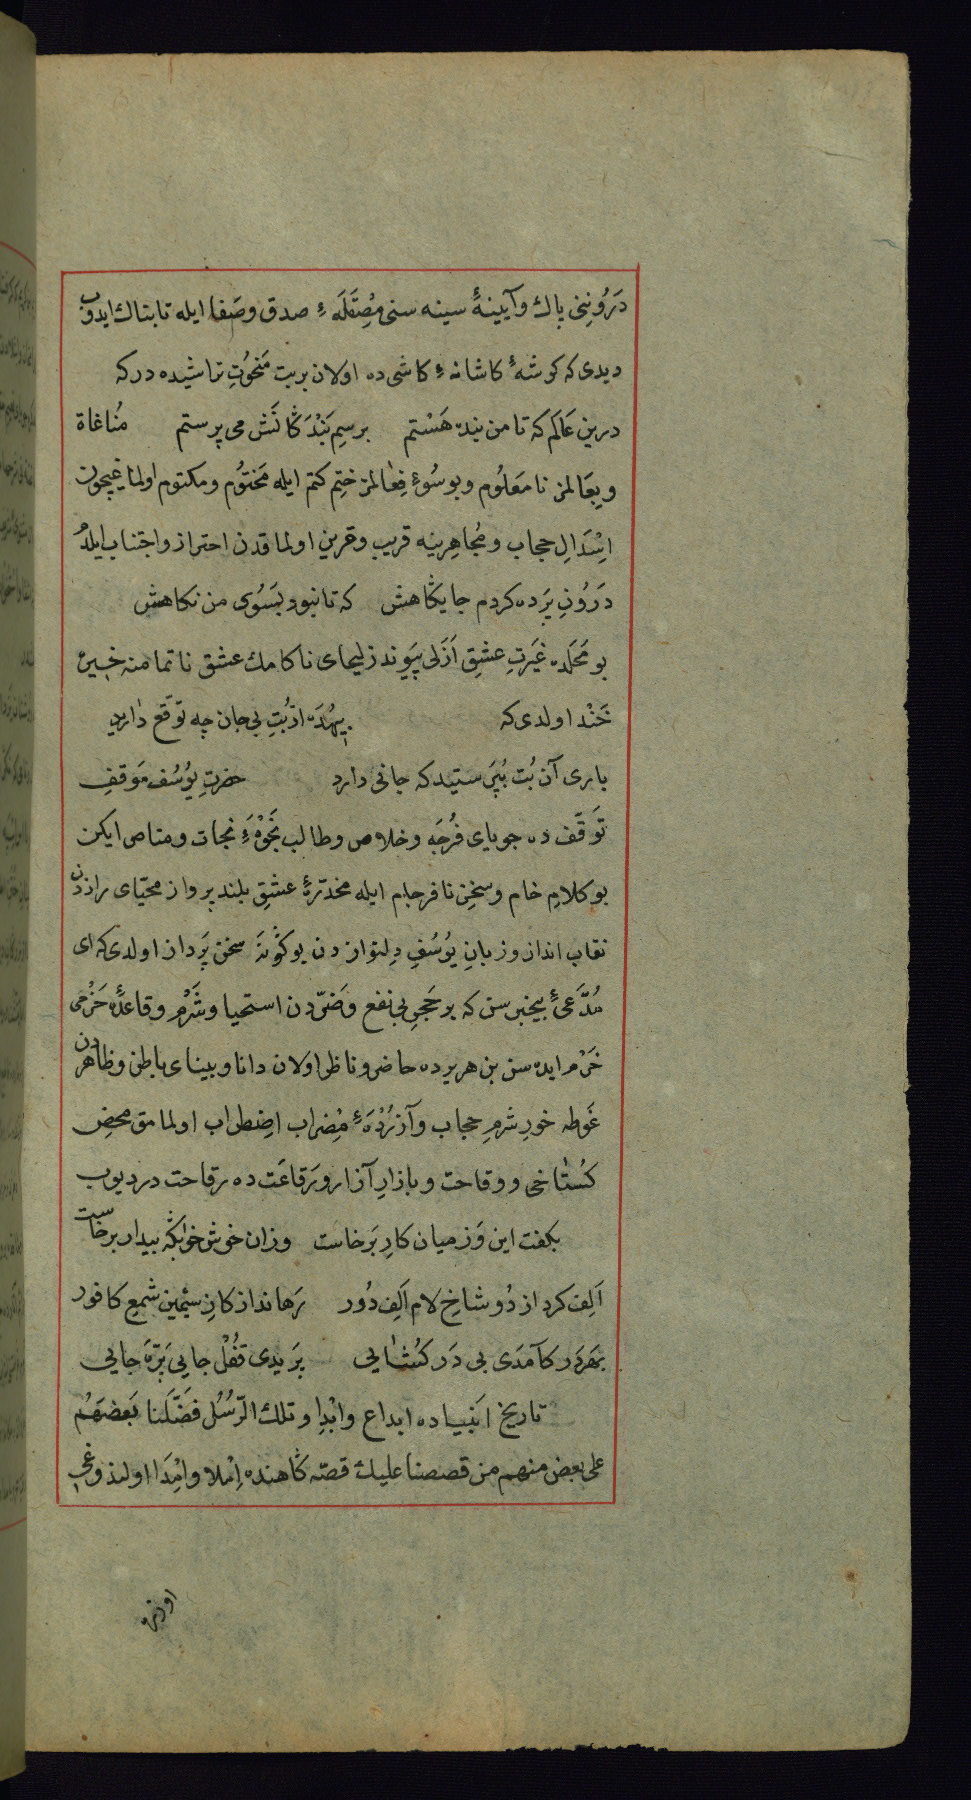 دَرُونِنى پاك وآيينهٔ سينه سنى مِصْقَلَهءِ صدق وصَفا ايله تابناك ايدوب
ديدى كه كوشهٔ كاشانهءِ كاشى ده اولان بر بت مَنحُوتِ تراشيده در كه
درين عَالَم كه تا من بنده هَسْتم برسمِ بَنْدَكَانَش مى پرستم مُناغاة
وبِعَالمز نا مَعلُوم وبو سُوءِ فِعٰالمز ختِمِ كتم ايله مَختُوم ومكتوم اولماغيچون
اِسْدَالِ حجاب و مُجاهرينه قريب وقرين اولماقدن احتراز واجتناب ايلدُم
دَرُونِ پَرده كردم جايگاهش كه تا نبود بسَوى من نكاهش
بو مَحَلده غَيَرتِ عشقِ اَزَلى پَيوند زليخاى ناكامك عشق ناتمامنه
خَنْد اولدى كه بيهُدَه ازبُتِ بى جان چه توَقّع داريد
بارى آن بُت بُپَرستيد كه جانى دارد حضرتِ يوُسُف مَوقفِ
توَقّف ده جوياى فُرجَه وخلاص وطالب نَجْوْهَٔ نجات ومناص ايكن
بو كلامِ خام وسخنِ نافرجام ايله مخدّرهٔ عشقِ بلند پرواز محيّاى رازدن
نقاب انداز وزبانِ يوُسُفِ دِلنوازدن بو كوُنه سخن پَرداز اولدى كه اى
مُدَّعىٔ بيخبر سن كه بر حَجرِ بى نفع وضَرّدن استحيا وشَرْم وقاعدَهٔ حَزْمى
خَرْم ايده سن بن هر يرده حاضر وناظر اولان دانا وبيناى باطن وظاهردن
غَوطه خورِ شرمِ حجاب وآزُرْدَهٔ مِضراب اضِطراب اولمامق محضِ
كُستٰاخى ووقاحت وبازارِ آزار ورَقاعَت ده رقاحت در ديوب
بكفت اين وَز ميان كارِ بَرخاست وزان خوش خوابگه بيدار برخاست
اَلِف كرد از دُو شاخِ لام اَلِف دُور رَهاند از كازِ سيْمين شمعِ كافور
بهَر دَر كآمَدى بى دَر كَشٰايى پَريدى قفُل جايى پَرّهَ جايى
تاريخ انَبيا ده ابداع وابْدا و تلك الرّسُل فَضّلَنا بَعضَهُم
على بعض منهم من قصصنا عليك قصّه گاهنده اِملا وامِدَا اولنذوغى
اوزره